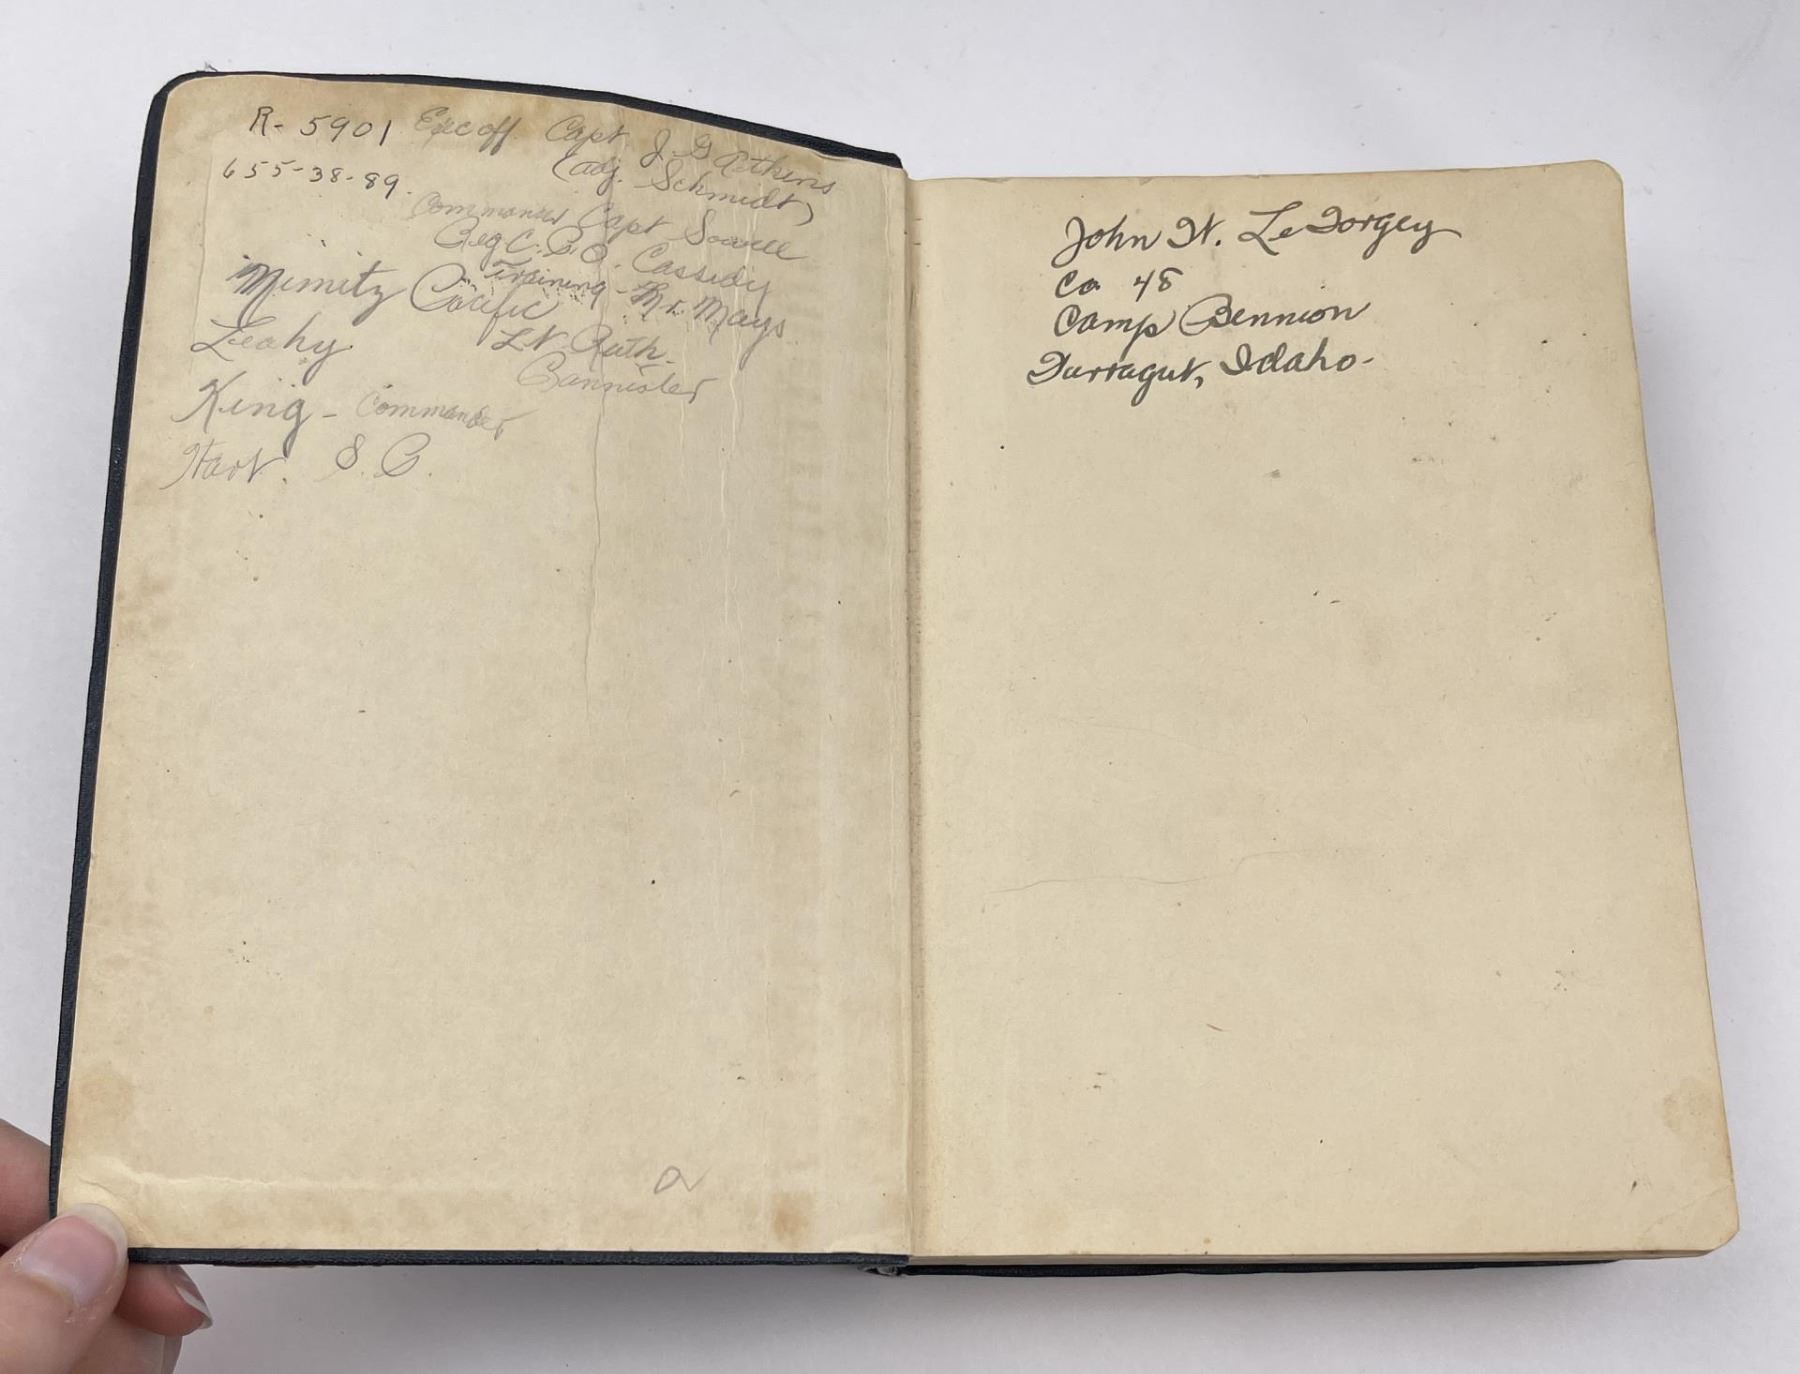 R- 5901 Exc off. Capt. J. G Atkins
(adj. Schmidt)
655-38-89.
Commander Capt Sowell
Reg C. P. O. Cassidy
Training - Mr Mays
Nimitz Pacific
Lt. Ruth-
Leahy
Bannister
King - Commander
Hart. S. P.
a
John W. LeForgey
Co 48
Camp Bennion
Farragut, Idaho-